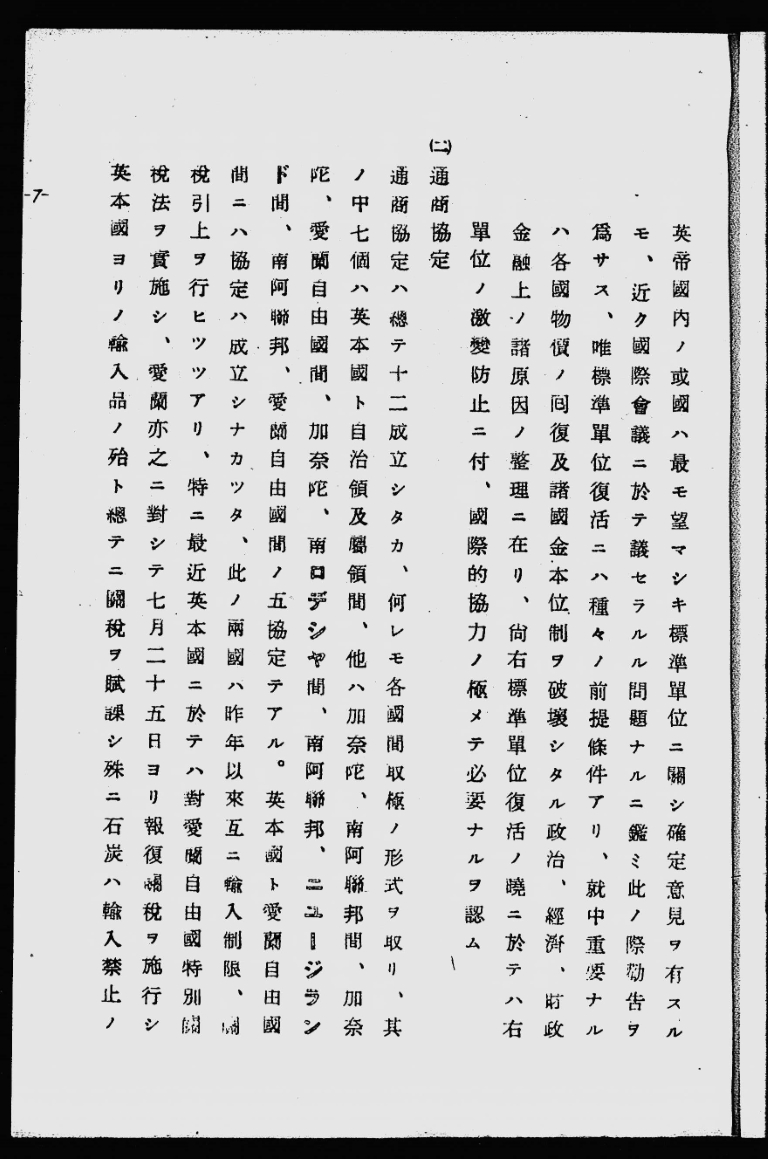 英帝國内ノ或國ハ最モ望マシキ標準單位ニ關シ確定意見ヲ有スル
モ、近ク國際會議ニ於テ議セラルル問題ナルニ鑑ミ此ノ際勸告ヲ
爲サス、唯標準單位復活ニハ種々ノ前提條件アリ、就中重要ナル
ハ各國物價ノ囘復及諸國金本位制ヲ破壞シタル政治、經濟、財政
金融上ノ諸原因ノ整理ニ在リ、尙右標準單位復活ノ曉ニ於テハ右
單位ノ激變防止ニ付、國際的協力ノ極メテ必要ナルヲ認ム
㈡通商協定
通商協定ハ總テ十二成立シタカ、何レモ各國間取極ノ形式ヲ取リ、其
ノ中七個ハ英本國ト自治領及屬領間、他ハ加奈陀、南阿聯邦間、加奈
陀、愛蘭自由國間、加奈陀、南ロデシヤ間、南阿聯邦、ニユージラン
ド間、南阿聯邦、愛蘭自由國間ノ五協定テアル。英本國ト愛蘭自由國
間ニハ協定ハ成立シナカツタ、此ノ兩國ハ昨年以來互ニ輸入制限、關
稅引上ヲ行ヒツツアリ、特ニ最近英本國ニ於テハ對愛蘭自由國特別關
稅法ヲ實施シ、愛蘭亦之ニ對シテ七月二十五日ヨリ報復關稅ヲ施行シ
英本國ヨリノ輸入品ノ殆ト總テニ關稅ヲ賦課シ殊ニ石炭ハ輸入禁止ノ
-7-